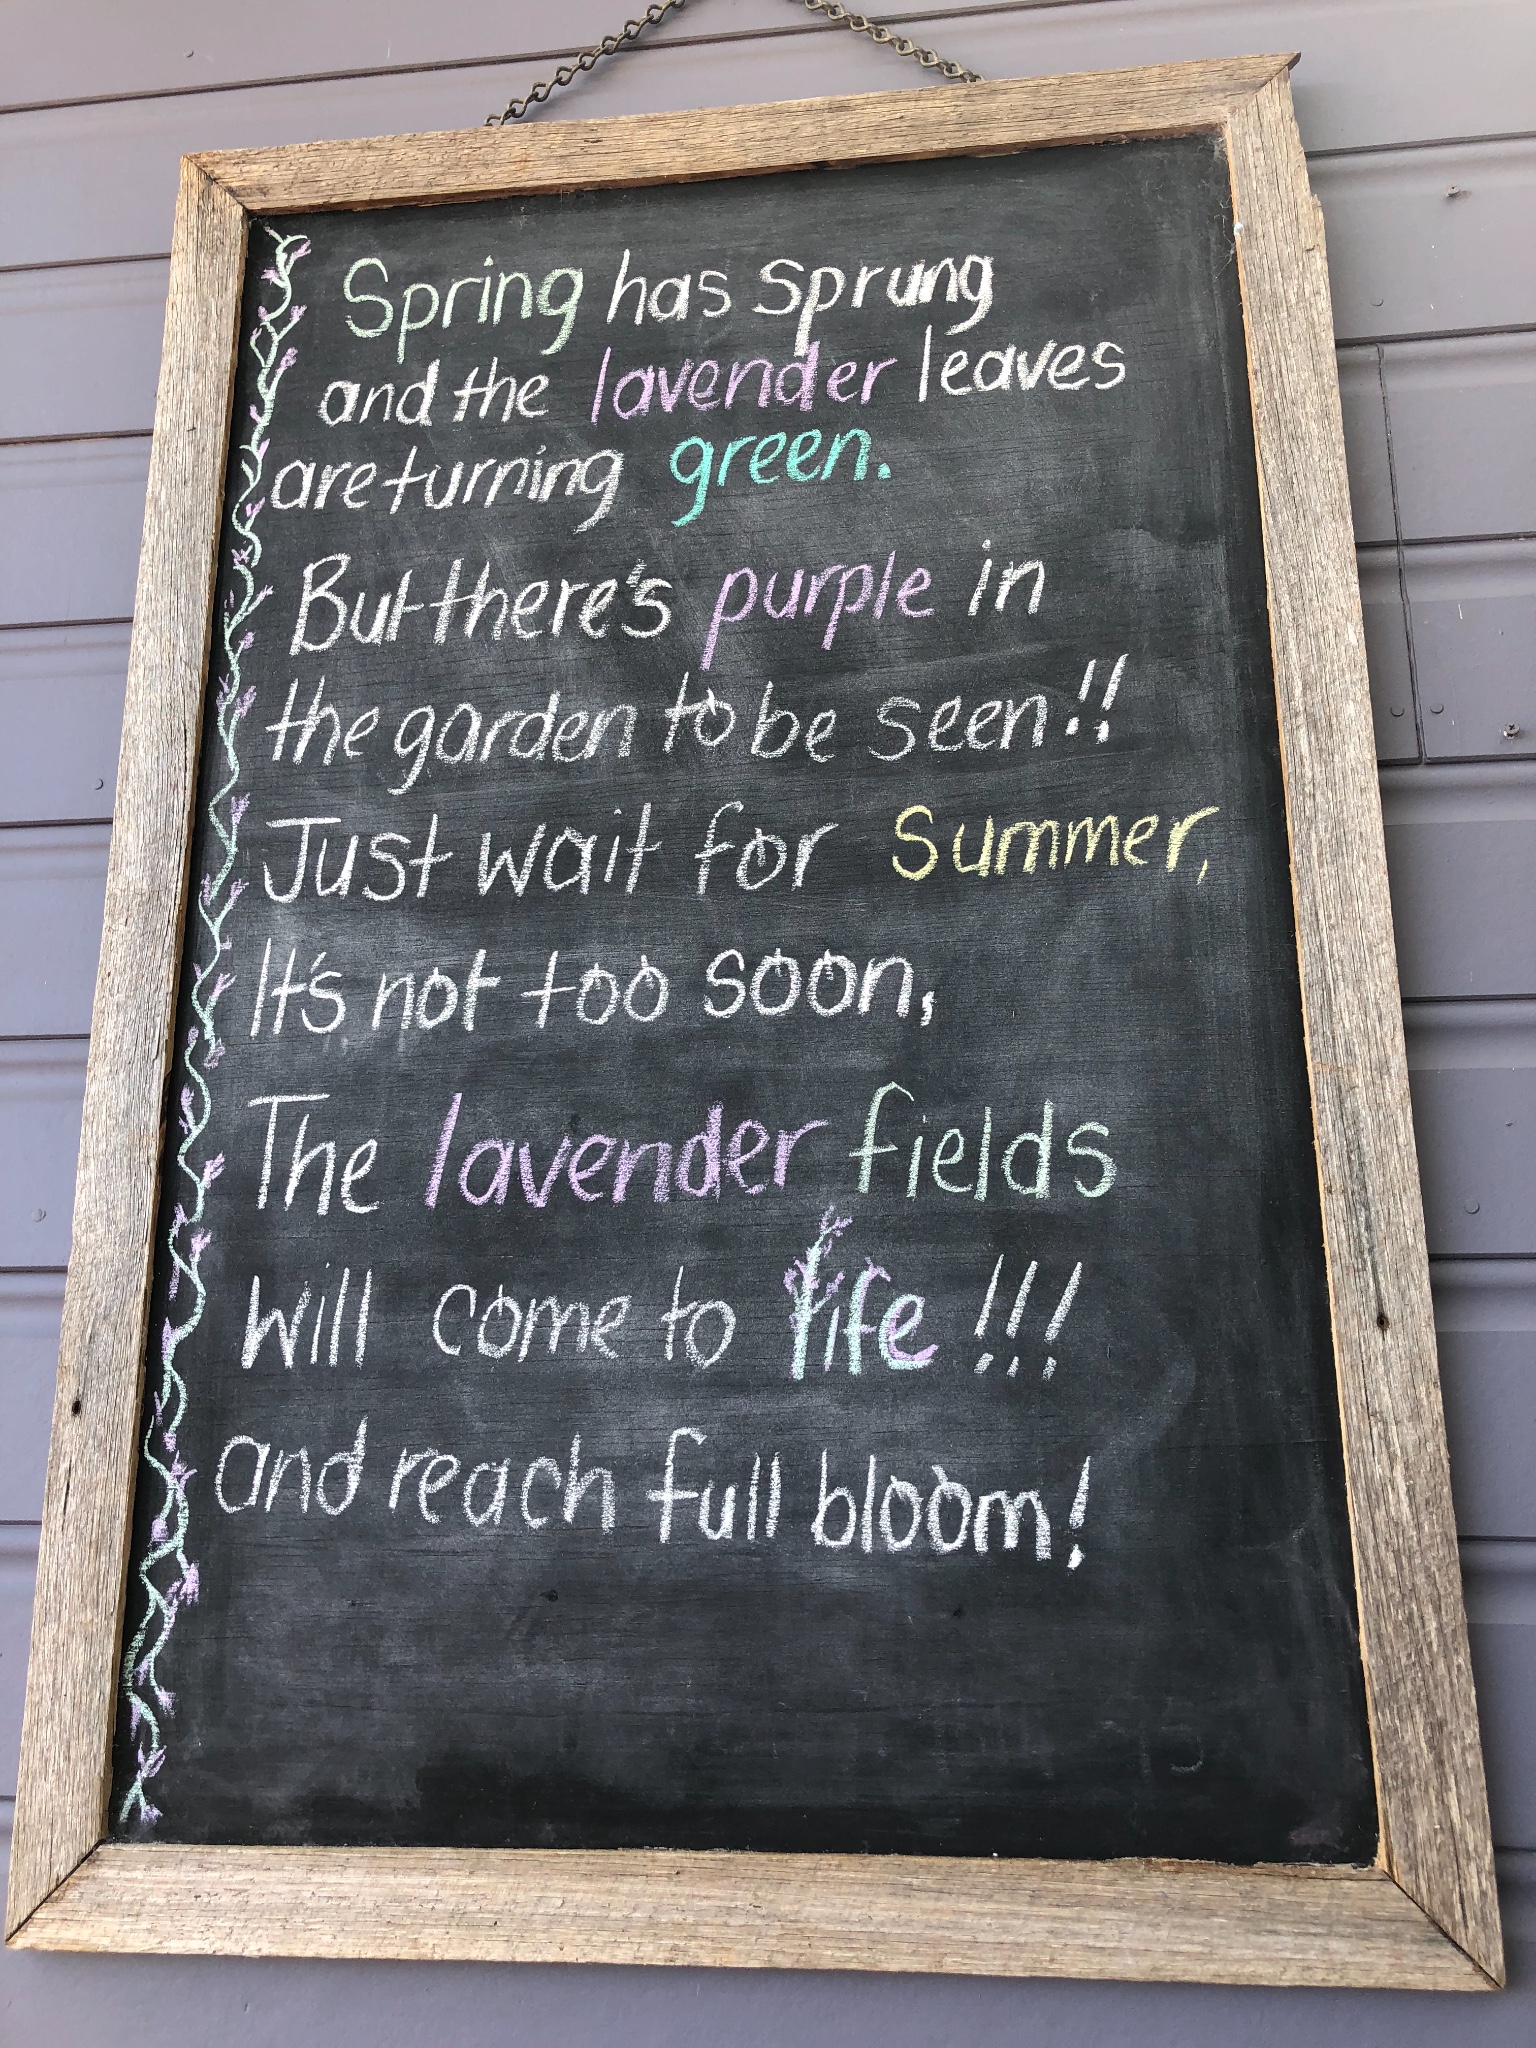 Spring has Sprung
and the lavender leaves
are turning green.
But there's purple in
the garden to be seen!!
Just wait for Summer,
It's not too soon,
The lavender fields
will come to life!!!
and reach full bloom!